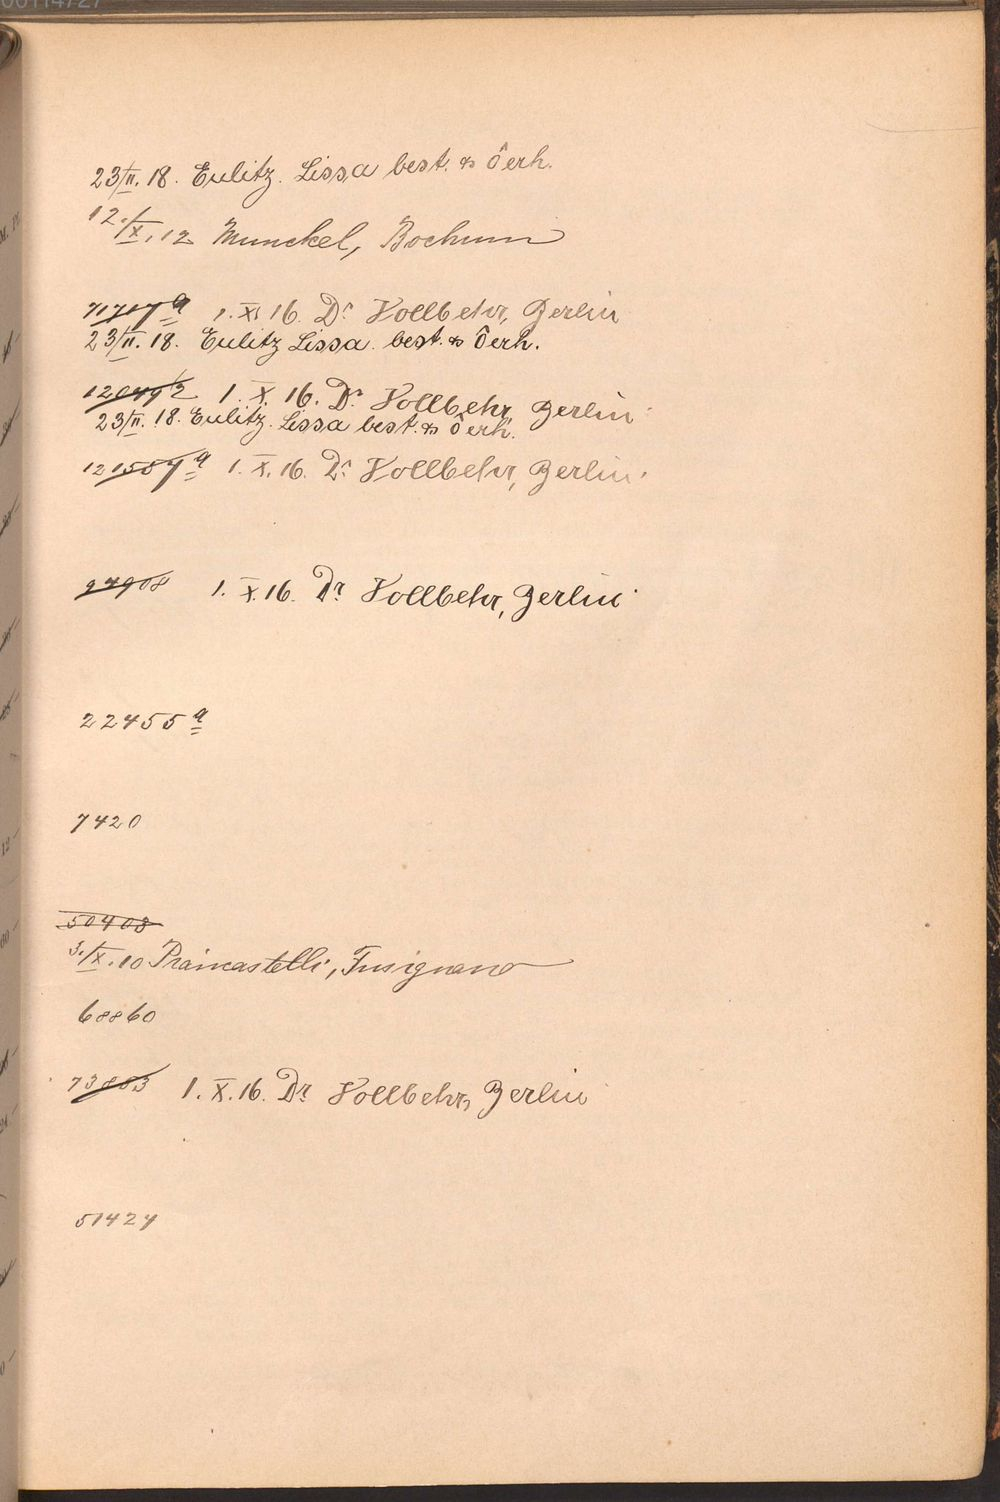 23/II. 18. Eulitz. Lissa best. & Ô erh.
12./IX. 12 Munckel, Bochum
71717 a 1. XI 16. Dr Vollbehr, Berlin
23/II. 18. Eulitz Lissa. best. & Ô erh.
120492 1. X. 16. Dr Vollbehr, Berlin
23/II. 18. Eulitz. Lissa best. & Ô erh.
121587 a 1. X. 16. Dr Vollbehr, Berlin.
97908 1. X. 16. Dr Vollbehr, Berlin.
22455 a
7420
50408
3./IX. 10 Piancastelli, Fusignano
68860
73883 1. X. 16. Dr Vollbehr, Berlin
51424